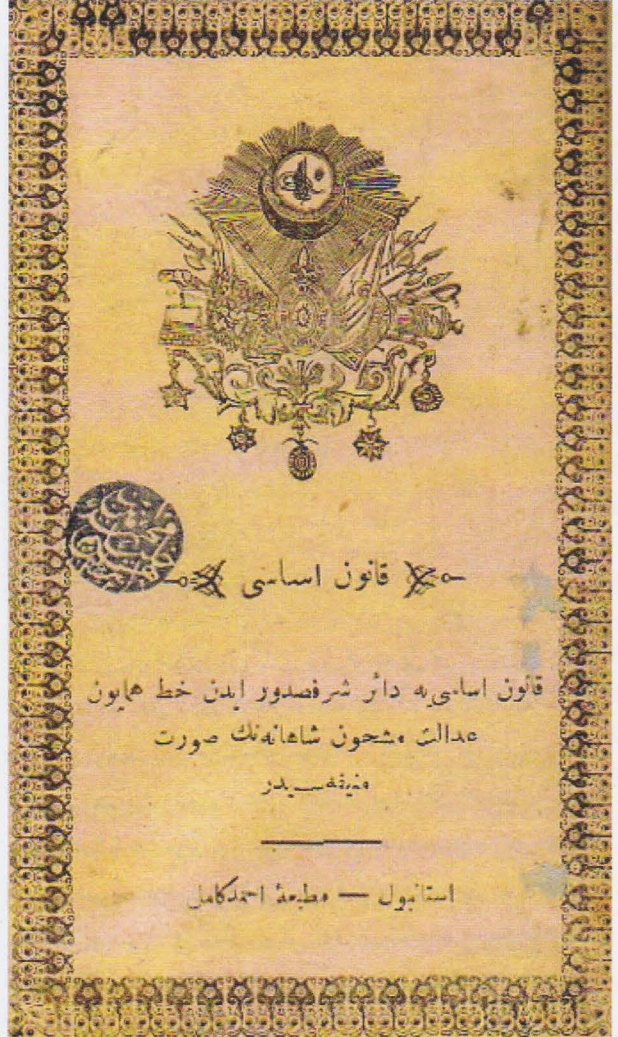 قانون اساسی
قانون اساسی‌یه دائر شرفصدور ایدن خط همایون
عدالت مشحون شاهانه‌نك صورت
منیفه‌سیدر
استانبول — مطبعهٔ احمد كامل